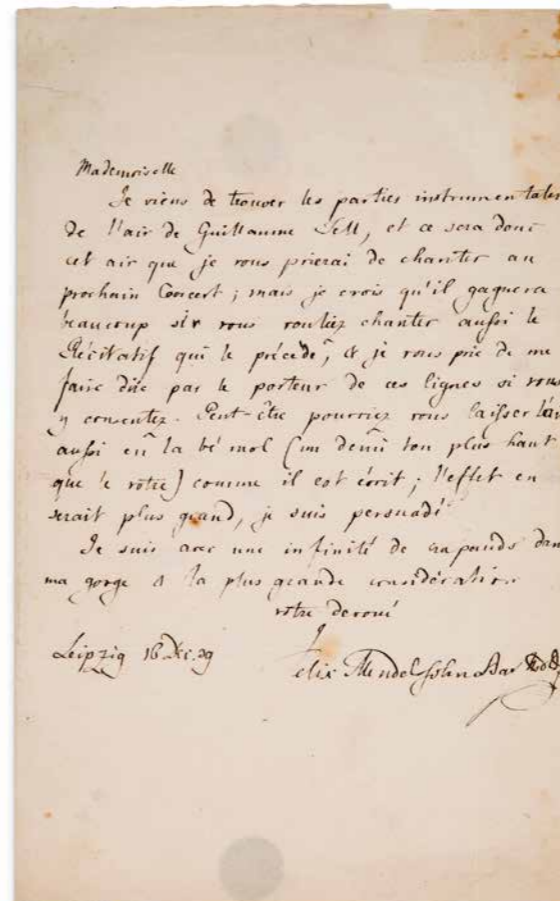 Mademoiselle
Je viens de trouver les parties instrumentales
de l'air de Guillaume Tell, et ce sera donc
cet air que je vous prierai de chanter au
prochain Concert; mais je crois qu'il gagnera
beaucoup si vous vouliez chanter aussi le
Récitatif qui le précède, & je vous prie de me
faire dire par le porteur de ces lignes si vous
y consentez. Peut-être pourriez vous laisser l'air
aussi en la bémol (un demi ton plus haut
que le vôtre) comme il est écrit; l'effet en
serait plus grand, je suis persuadé
Je suis avec une infinité de crapauds dans
ma gorge & la plus grande considération
votre dévoué
Leipzig 16 Dec. 39
Felix Mendelssohn Bartholdy